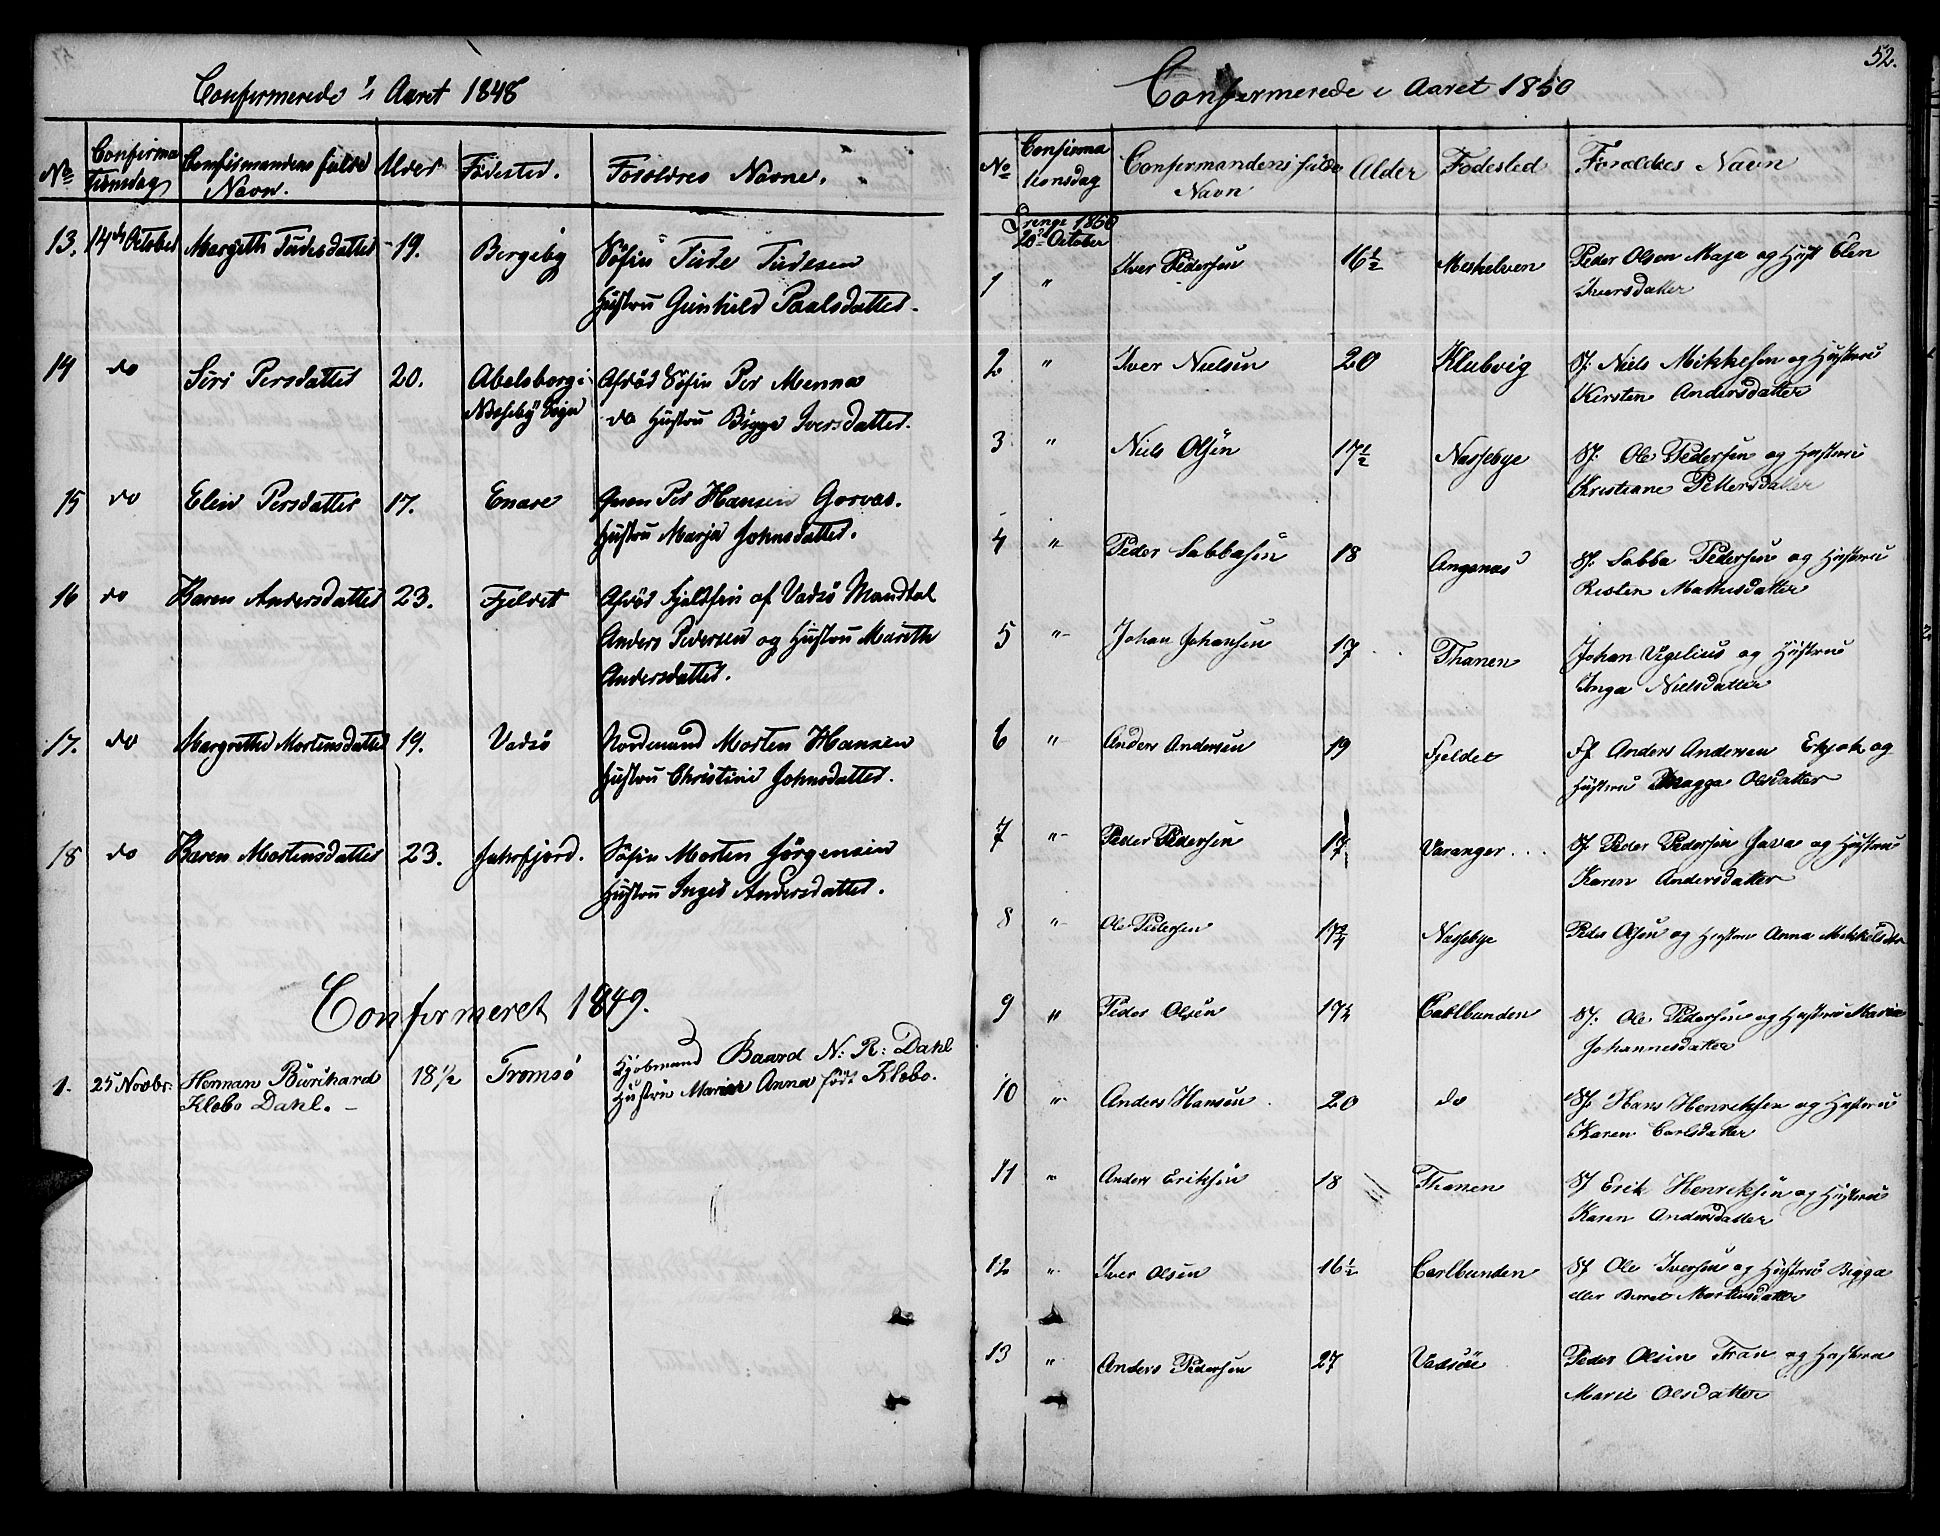 Confirmerede i Aaret 1848
No
Confirma
tionsdag
Confirmandens fulde
Navn.
Alder
Födested.
Forældres Navne.
13. 14de October Margeth Tudesdatter 19. Bergeby Söfin Tude Tudesen
Hustru Gunhild Paalsdatter.
14 do Siri Persdatter 20. Abelsborg i Afdöd Söfin Per Menna
Næsseby Sogn do Hustru Bigga Iversdatter.
15 do Elen Persdatter 17. Enare Qvæn Per Hansen Gorvas.
Hustru Marja Johnsdatter.
16 do Karen Andersdatter 23. Fjeldet Afdöd Fjeldfin af Vadsö Mandtal
Anders Pedersen og Hustru Mareth
Andersdatter.
17. do Margrethe Mortensdatter 19. Vadsö Nordmand Morten Hansen
Hustru Christine Johnsdatter.
18 do Karen Mortensdatter 23. Jahrfjord. Söfin Morten Jörgensen
Hustru Inger Andersdatter.
Confirmeret 1849.
1. 25 Novbr. Herman Burchard 18 1/2 Tromsö Kjöbmand Baard N: R: Dahl
Klebo Dahl. - Hustru Maria Anna födt Klebo.
52.
Confirmerede i Aaret 1850
No
Confirma
tionsdag
Confirmandens fulde
Navn
Alder
Fodested
Foraldres Navn
Drenge 1850
20de October
1 " Iver Pedersen 16 1/2 Meskelven Peder Olsen Maja og Hust Elen
Iversdatter
2 " Iver Nielsen 20 Klubvig Sf. Niels Mikkelsen og Hustru
Kirsten Andersdatter
3 " Niels Olsen 17 1/2 Nassebye Sf. Ole Pedersen og Hustru
Kristiane Pettersdatter
4 " Peder Sabbasen 18 Angsnæs Sf. Sabba Pedersen og Hustru
Risten Mathisdatter
5 " Johan Johansen 17 Thanen Johan Vigelius og Hustru
Inga Nielsdatter
6 " Anders Andersen 19 Fjeldet Ff Anders Andersen og
Hustru Magga Olsdatter
7 " Peder Pedersen 17 Varanger Sf Peder Pedersen Java og Hustru
Karen Andersdatter
8 " Ole Pedersen 17 3/4 Nassebye Peder Olsen og Hustru Anna Mikkelsdtr
9 " Peder Olsen 17 1/2 Carlbunden Sf. Ole Pedersen og Hustru Maria
Johannesdatter
10 " Anders Hansen 20 do Sf. Hans Henriksen og Hustru
Karen Carlsdatter
11 " Anders Eriksen 18 Thanen Sf Erik Henriksen og Hustru
Karen Andersdatter
12 " Iver Olsen 16 1/2 Carlbunden Sf Ole Iversen og Hustru Bigga
eller Berret Mortensdatter
13 " Anders Pedersen 27 Vadsöe Peder Olsen Fran og Hustru
Marie Olsdatter